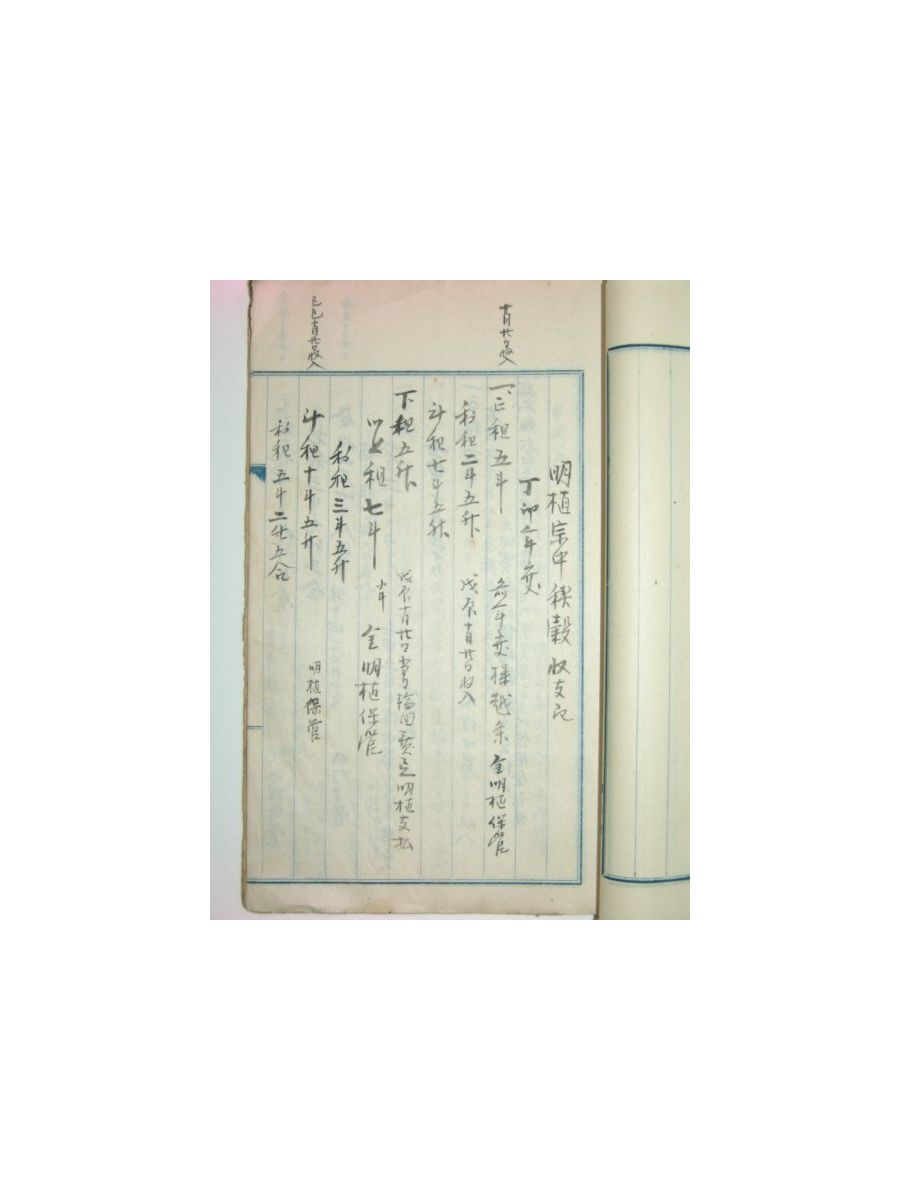 明植宗中 稧穀 收支記
丁卯年度
十月廿日收入
一、正租五斗 前年度 越条 金明植保管
利租二斗五升 戊辰十月廿日收入
斗租七斗五升
下租五升 戊辰十月廿日 明植支払
以上租七斗 金明植保管
利租三斗五升
己巳十月廿日收入
斗租十斗五升 明植保管
利租五斗二升五合